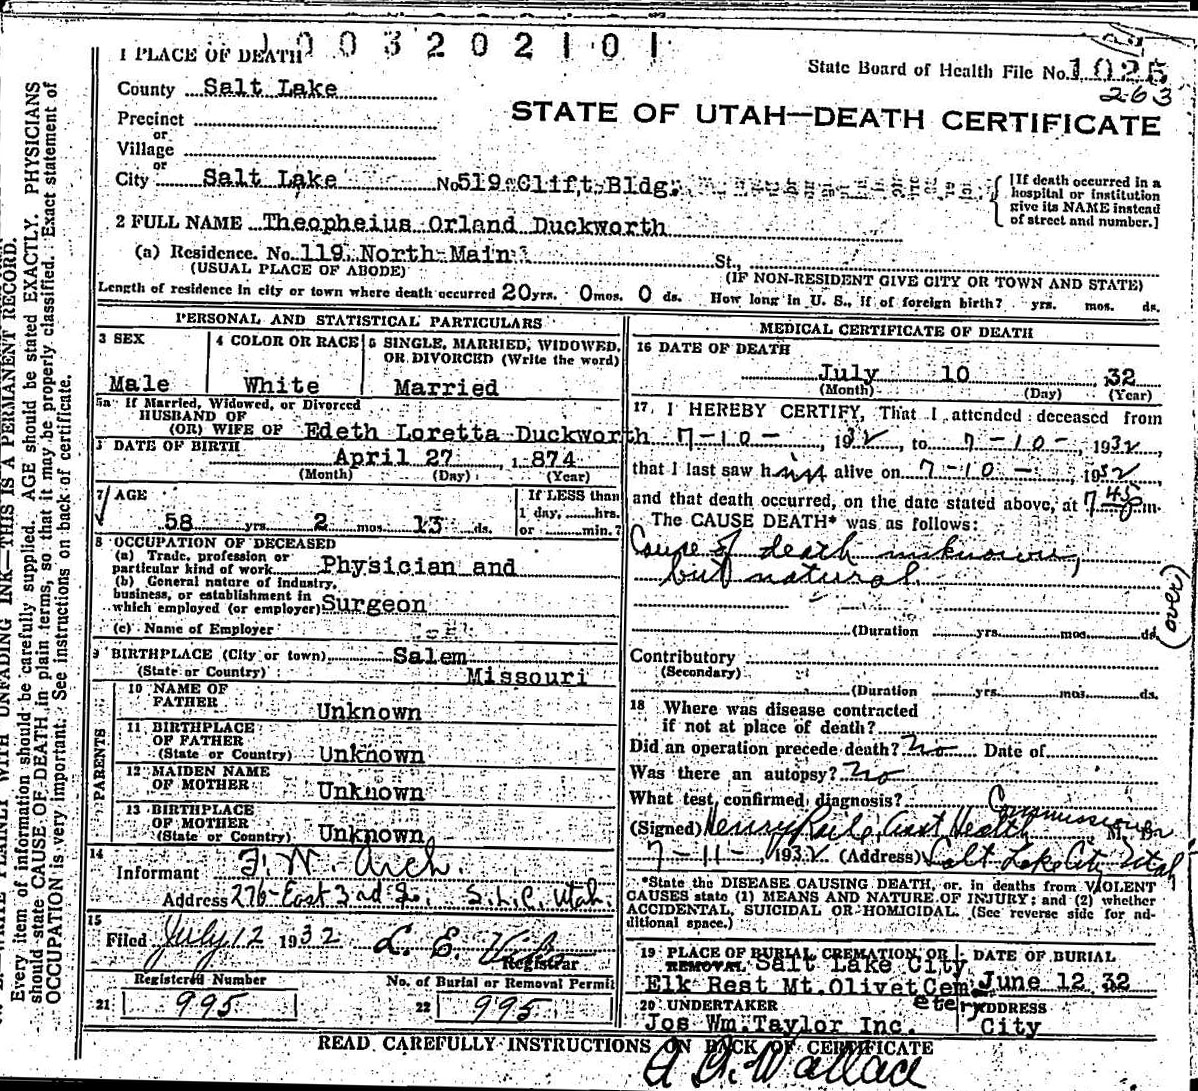 1003202101
1 PLACE OF DEATH
State Board of Health File No. 1025
263
County Salt Lake
STATE OF UTAH—DEATH CERTIFICATE
Precinct
or
Village
or
City Salt Lake No 519 Clift Bldg.
[If death occurred in a hospital or institution give its NAME instead of street and number.]
2 FULL NAME Theopheius Orland Duckworth
(a) Residence. No. 119 North Main St.,
(USUAL PLACE OF ABODE) (IF NON-RESIDENT GIVE CITY OR TOWN AND STATE)
Length of residence in city or town where death occurred 20 yrs. 0 mos. 0 ds. How long in U. S., if of foreign birth? yrs. mos. ds.
PERSONAL AND STATISTICAL PARTICULARS
3 SEX
Male
4 COLOR OR RACE
White
5 SINGLE, MARRIED, WIDOWED, OR DIVORCED (Write the word)
Married
5a If Married, Widowed, or Divorced
HUSBAND OF
(OR) WIFE OF Edeth Loretta Duckworth
DATE OF BIRTH
April 27, 1874
(Month) (Day) (Year)
7 AGE
58 yrs. 2 mos. 13 ds.
If LESS than
1 day, hrs.
or min.?
8 OCCUPATION OF DECEASED
(a) Trade, profession or
particular kind of work Physician and
(b) General nature of industry,
business, or establishment in
which employed (or employer) Surgeon
(c) Name of Employer
9 BIRTHPLACE (City or town) Salem
(State or Country) Missouri
PARENTS
10 NAME OF
FATHER Unknown
11 BIRTHPLACE
OF FATHER
(State or Country) Unknown
12 MAIDEN NAME
OF MOTHER Unknown
13 BIRTHPLACE
OF MOTHER
(State or Country) Unknown
14
Informant F. W. Arch.
Address 276 East 3rd So. S.L.C. Utah.
15
Filed July 12 1932 L. E.
Registrar
Registered Number
21 995
No. of Burial or Removal Permit
22 995
MEDICAL CERTIFICATE OF DEATH
16 DATE OF DEATH
July 10 32
(Month) (Day) (Year)
17 I HEREBY CERTIFY, That I attended deceased from
7-10-, 1932, to 7-10-, 1932,
that I last saw him alive on 7-10-, 1932
and that death occurred, on the date stated above, at 7 45 p m.
The CAUSE DEATH* was as follows:
Cause of death unknown,
but natural.
(over)
(Duration yrs. mos. ds.
Contributory
(Secondary)
(Duration yrs. mos. ds.
18 Where was disease contracted
if not at place of death?
Did an operation precede death? No Date of
Was there an autopsy? No
What test confirmed diagnosis?
Commissioner
(Signed) Henry Raile, Asst Health M. D.
7-11-, 1932 (Address) Salt Lake City Utah
*State the DISEASE CAUSING DEATH, or, in deaths from VIOLENT
CAUSES state (1) MEANS AND NATURE OF INJURY; and (2) whether
ACCIDENTAL, SUICIDAL OR HOMICIDAL. (See reverse side for ad-
ditional space.)
19 PLACE OF BURIAL CREMATION, OR
REMOVAL Salt Lake City
Elk Rest Mt. Olivet Cemetery
DATE OF BURIAL
June 12, 32
20 UNDERTAKER
Jos Wm. Taylor Inc.
ADDRESS
City
READ CAREFULLY INSTRUCTIONS ON BACK OF CERTIFICATE
Wallace
WRITE PLAINLY WITH UNFADING INK—THIS IS A PERMANENT RECORD.
Every item of information should be carefully supplied. AGE should be stated EXACTLY. PHYSICIANS
should state CAUSE OF DEATH in plain terms, so that it may be properly classified. Exact statement of
OCCUPATION is very important. See instructions on back of certificate.